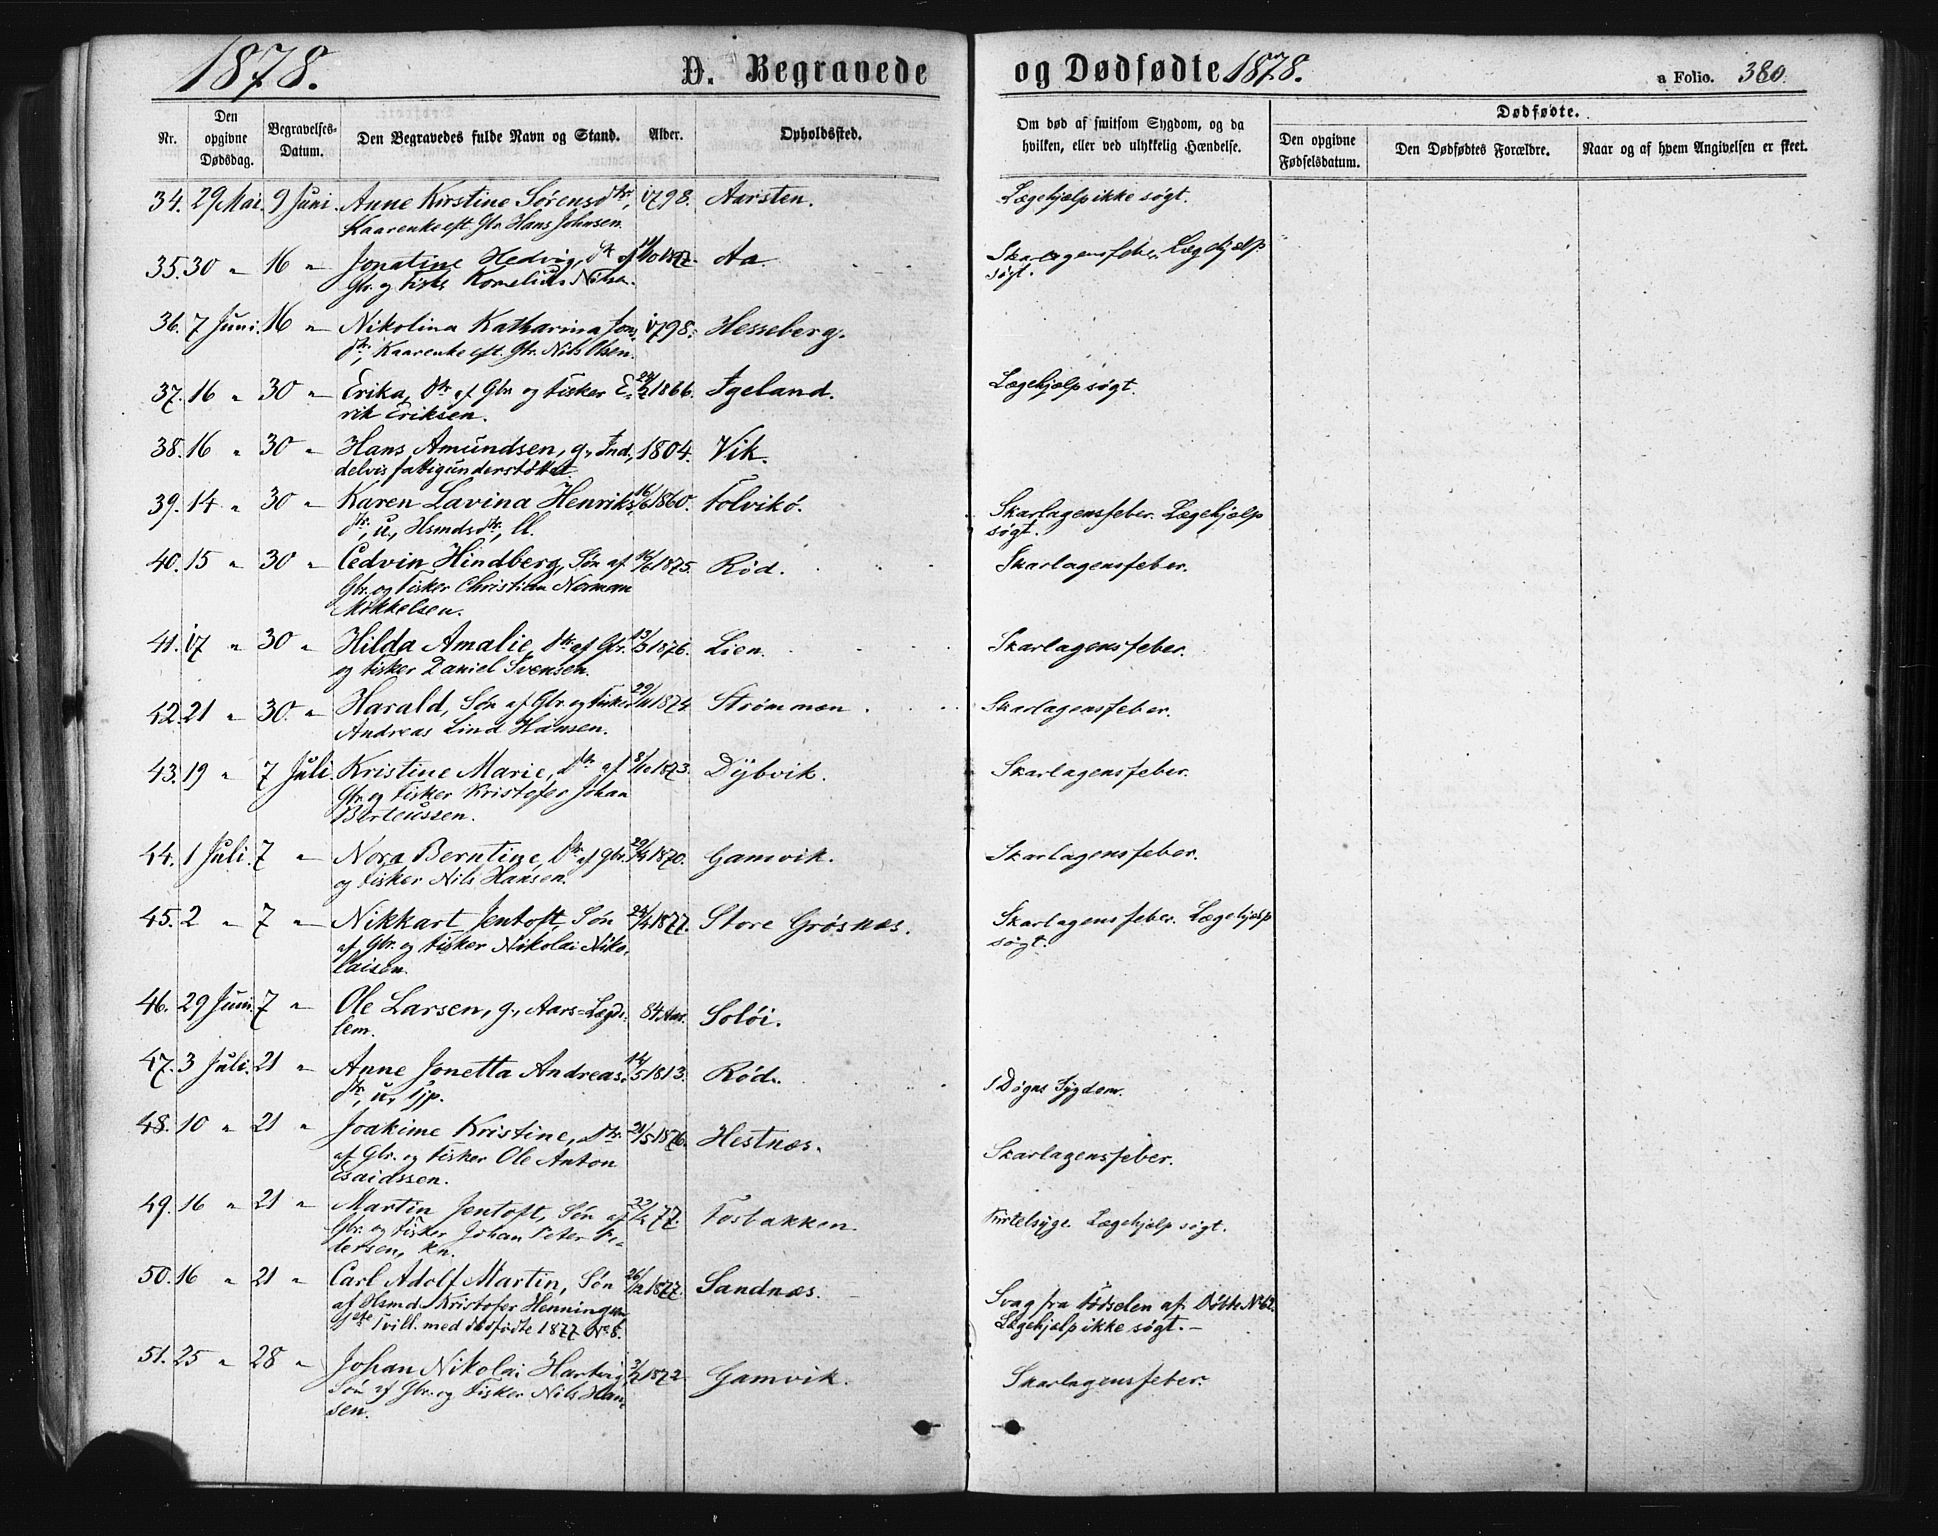 1878.
D. Begravede
og Dødfødte 1878.
a Folio. 380.
Nr.
Den opgivne Dødsdag.
Begravelses-Datum.
Den Begravedes fulde Navn og Stand.
Alder.
Opholdssted.
Om død af smitsom Sygdom, og da hvilken, eller ved ulykkelig Hændelse.
Dødfødte.
Den opgivne Fødselsdatum.
Den Dødfødtes Forældre.
Naar og af hvem Angivelsen er skeet.
34. 29 Mai. 9 Juni. Anne Kirstine Sørensdtr, 1798. Aarsten. Lægehjælp ikke søgt.
Kaarenke eft. Gbr. Hans Johnsen.
35. 30 " 16 " Jonatine Hedvig, Dtr af Aa. Skarlagensfeber. Lægehjælp
Gbr. og Fisk. Kornelius søgt.
36. 7 Juni. 16 " Nikolina Katharina Jons- 1798. Hesseberg.
dtr, Kaarenke eft. Gbr. Nils Olsen.
37. 16 " 30 " Erika, Dtr af Gbr. og Fisker E- 1866. Igeland. Lægehjælp søgt.
rik Eriksen.
38. 16 " 30 " Hans Amundsen, g., Ind., 1804. Vik.
delvis fattigunderstøttet.
39. 14 " 30 " Karen Lavina Henriks- 16/6 1860. Tolvikø. Skarlagensfeber. Lægehjælp
dtr, u., Hsmdsdtr, ll. søgt.
40. 15 " 30 " Cedvin Hindberg, Søn af 16/6 1875. Rød. Skarlagensfeber.
Gbr. og Fisker Christian Norman
Mikkelsen.
41. 17 " 30 " Hilda Amalie, Dtr af Gbr. 1876. Lien. Skarlagensfeber.
og Fisker Daniel Svensen.
42. 21 " 30 " Harald, Søn af Gbr. og Fisker 29/11 1874. Strømmen. Skarlagensfeber.
Andreas Lind Hansen.
43. 19 " 7 Juli. Kristine Marie, Dtr af 1873. Dybvik. Skarlagensfeber.
Gbr. og Fisker Kristofer Johan
Berteussen.
44. 1 Juli. 7 " Nora Berntine, Dtr af Gbr. 1870. Gamvik. Skarlagensfeber.
og Fisker Nils Hansen.
45. 2 " 7 " Nikkart Jentoft, Søn 1877. Store Grøsnæs. Skarlagensfeber. Lægehjælp
af Gbr. og Fisker Nikolai Niko- søgt.
laisen.
46. 29 Juni. 7 " Ole Larsen, g., Aars-Lægds- 84 Aar. Soløi.
lem.
47. 3 Juli. 21 " Anne Jonetta Andreas- 14/5 1813. Rød. Døgns Sygdom.
dtr, u., Tjp.
48. 10 " 21 " Joakime Kristine, Dtr 21/5 1876. Hestnæs. Skarlagensfeber.
af Gbr. og Fisker Ole Anton
Esaidssen.
49. 16 " 21 " Martin Jentoft, Søn af 77. Fosbakken. Kirtelsyge. Lægehjælp søgt.
Gbr. og Fisker Johan Peter Pe-
dersen, kn.
50. 16 " 21 " Carl Adolf Martin, Søn 26/12 1877. Sandnæs. Svag fra Fødselen af. Døbte No 62.
af Hsmd. Kristofer Henningsen Lægehjælp ikke søgt. –
Tvill. med dødfødte 1877 No 8.
51. 25 " 28 " Johan Nikolai Hartvig, 1872 Gamvik. Skarlagensfeber.
Søn af Gbr. og Fisker Nils Han-
sen.